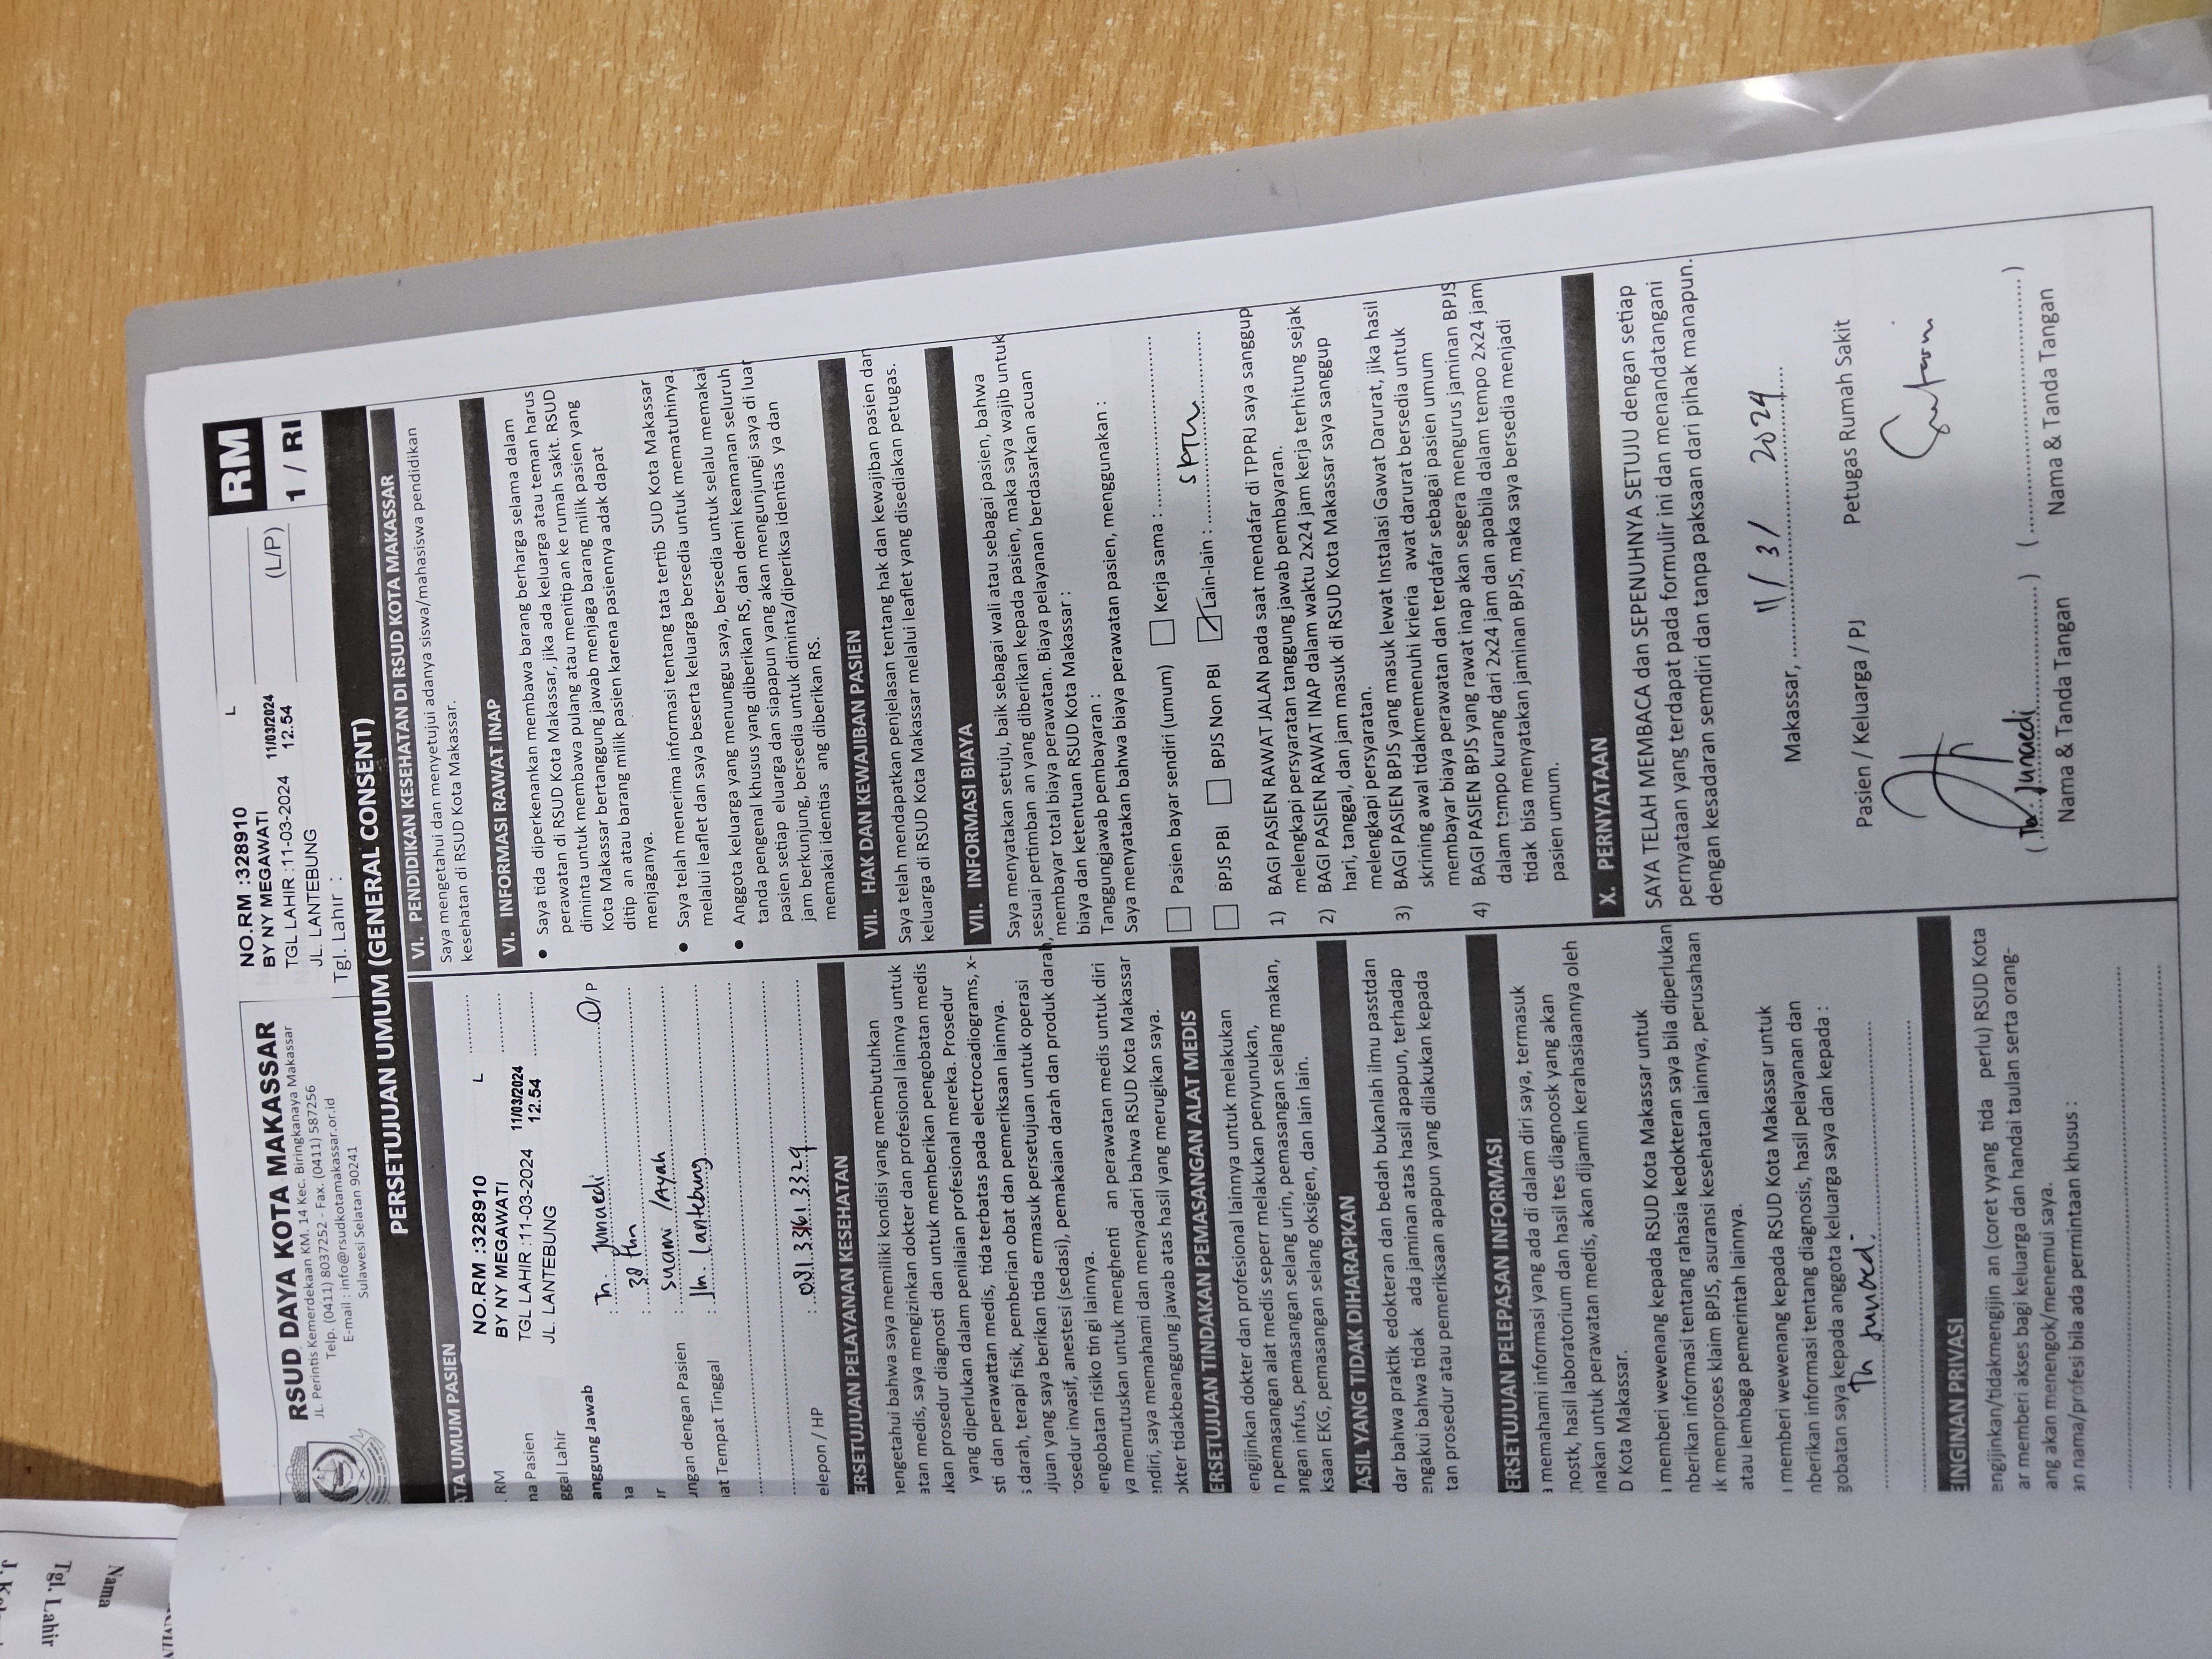 J. Kel
Tgl. Lahir
Nama
RSUD DAYA KOTA MAKASSAR
JL. Perintis Kemerdekaan KM. 14 Kec. Biringkanaya Makassar
Telp. (0411) 8037252 - Fax. (0411) 587256
E-mail : info@rsudkotamakassar.or.id
Sulawesi Selatan 90241
NO.RM :328910 L
BY NY MEGAWATI
TGL LAHIR :11-03-2024 11/03/2024 12.54
JL. LANTEBUNG
Tgl. Lahir :
(L/P)
RM
1 / RI
PERSETUJUAN UMUM (GENERAL CONSENT)
ATA UMUM PASIEN
. RM
na Pasien
ggal Lahir
NO.RM :328910 L
BY NY MEGAWATI
TGL LAHIR :11-03-2024 11/03/2024 12.54
JL. LANTEBUNG
anggung Jawab
na : Tn. Junaedi L/ P
ur : 38 thn
ungan dengan Pasien : suami /Ayah
nat Tempat Tinggal : Jln. Lantebung
elepon / HP : 081 33161 3329
ERSETUJUAN PELAYANAN KESEHATAN
nengetahui bahwa saya memiliki kondisi yang membutuhkan
atan medis, saya mengizinkan dokter dan profesional lainnya untuk
ukan prosedur diagnosti dan untuk memberikan pengobatan medis
yang diperlukan dalam penilaian profesional mereka. Prosedur
sti dan perawattan medis, tida terbatas pada electrocadiograms, x-
s darah, terapi fisik, pemberian obat dan pemeriksaan lainnya.
ujuan yang saya berikan tida ermasuk persetujuan untuk operasi
rosedur invasif, anestesi (sedasi), pemakaian darah dan produk darah,
engobatan risiko tin gi lainnya.
ya memutuskan untuk menghenti an perawatan medis untuk diri
endiri, saya memahami dan menyadari bahwa RSUD Kota Makassar
okter tidakbeanggung jawab atas hasil yang merugikan saya.
ERSETUJUAN TINDAKAN PEMASANGAN ALAT MEDIS
engijinkan dokter dan profesional lainnya untuk melakukan
n pemasangan alat medis seperr melakukan penyunukan,
angan infus, pemasangan selang urin, pemasangan selang makan,
ksaan EKG, pemasangan selang oksigen, dan lain lain.
HASIL YANG TIDAK DIHARAPKAN
dar bahwa praktik edokteran dan bedah bukanlah ilmu passtdan
engakui bahwa tidak ada jaminan atas hasil apapun, terhadap
tan prosedur atau pemeriksaan apapun yang dilakukan kepada
ERSETUJUAN PELEPASAN INFORMASI
a memahami informasi yang ada di dalam diri saya, termasuk
gnostk, hasil laboratorium dan hasil tes diagnoosk yang akan
unakan untuk perawatan medis, akan dijamin kerahasiaannya oleh
D Kota Makassar.
a memberi wewenang kepada RSUD Kota Makassar untuk
nberikan informasi tentang rahasia kedokteran saya bila diperlukan
uk memproses klaim BPJS, asuransi kesehatan lainnya, perusahaan
atau lembaga pemerintah lainnya.
a memberi wewenang kepada RSUD Kota Makassar untuk
nberikan informasi tentang diagnosis, hasil pelayanan dan
gobatan saya kepada anggota keluarga saya dan kepada :
Tn Junaedi
EINGINAN PRIVASI
engijinkan/tidakmengijin an (coret yyang tida perlu) RSUD Kota
ar memberi akses bagi keluarga dan handai taulan serta orang-
ang akan menengok/menemui saya.
an nama/profesi bila ada permintaan khusus :
VI. PENDIDIKAN KESEHATAN DI RSUD KOTA MAKASSAR
Saya mengetahui dan menyetujui adanya siswa/mahasiswa pendidikan
kesehatan di RSUD Kota Makassar.
VI. INFORMASI RAWAT INAP
• Saya tida diperkenankan membawa barang berharga selama dalam
perawatan di RSUD Kota Makassar, jika ada keluarga atau teman harus
diminta untuk membawa pulang atau menitip an ke rumah sakit. RSUD
Kota Makassar bertanggung jawab menjaga barang milik pasien yang
ditip an atau barang milik pasien karena pasiennya adak dapat
menjaganya.
• Saya telah menerima informasi tentang tata tertib SUD Kota Makassar
melalui leaflet dan saya beserta keluarga bersedia untuk mematuhinya.
• Anggota keluarga yang menunggu saya, bersedia untuk selalu memakai
tanda pengenal khusus yang diberikan RS, dan demi keamanan seluruh
pasien setiap eluarga dan siapapun yang akan mengunjungi saya di luar
jam berkunjung, bersedia untuk diminta/diperiksa identias ya dan
memakai identias ang diberikan RS.
VII. HAK DAN KEWAJIBAN PASIEN
Saya telah mendapatkan penjelasan tentang hak dan kewajiban pasien dan
keluarga di RSUD Kota Makassar melalui leaflet yang disediakan petugas.
VII. INFORMASI BIAYA
Saya menyatakan setuju, baik sebagai wali atau sebagai pasien, bahwa
sesuai pertimban an yang diberikan kepada pasien, maka saya wajib untuk
membayar total biaya perawatan. Biaya pelayanan berdasarkan acuan
biaya dan ketentuan RSUD Kota Makassar :
Tanggungjawab pembayaran :
Saya menyatakan bahwa biaya perawatan pasien, menggunakan :
Pasien bayar sendiri (umum) Kerja sama :
BPJS PBI BPJS Non PBI Lain-lain :
1) BAGI PASIEN RAWAT JALAN pada saat mendafar di TPPRJ saya sanggup
melengkapi persyaratan tanggung jawab pembayaran.
2) BAGI PASIEN RAWAT INAP dalam waktu 2x24 jam kerja terhitung sejak
hari, tanggal, dan jam masuk di RSUD Kota Makassar saya sanggup
melengkapi persyaratan.
3) BAGI PASIEN BPJS yang masuk lewat Instalasi Gawat Darurat, jika hasil
skrining awal tidakmemenuhi krieria awat darurat bersedia untuk
membayar biaya perawatan dan terdafar sebagai pasien umum
4) BAGI PASIEN BPJS yang rawat inap akan segera mengurus jaminan BPJS
dalam tempo kurang dari 2x24 jam dan apabila dalam tempo 2x24 jam
tidak bisa menyatakan jaminan BPJS, maka saya bersedia menjadi
pasien umum.
X. PERNYATAAN
SAYA TELAH MEMBACA dan SEPENUHNYA SETUJU dengan setiap
pernyataan yang terdapat pada formulir ini dan menandatangani
dengan kesadaran semdiri dan tanpa paksaan dari pihak manapun.
Makassar, 11/ 3/ 2024
Pasien / Keluarga / PJ Petugas Rumah Sakit
( Tn. Junaedi ) ( )
Nama & Tanda Tangan Nama & Tanda Tangan